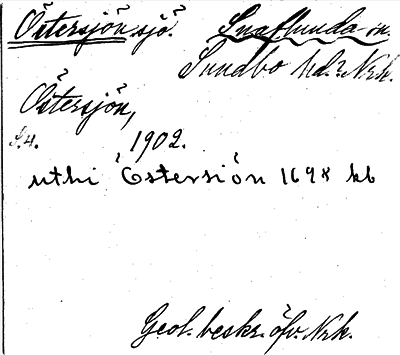 Östersjön sjö. Snaflunda sn.
Sundbo hd. Nrk.
Östersjön,
S. 4. 1902.
uthi Östersiön 1698 kb
Geol. beskr. öfv. Nrk.